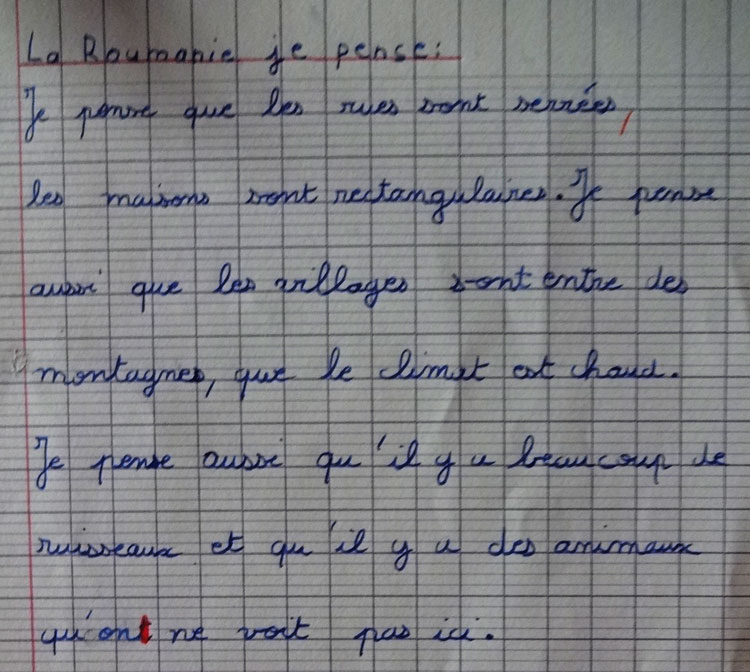 La Roumanie je pense:
Je pense que les rues sont serrées,
les maisons sont rectangulaires. Je pense
aussi que les villages sont entre des
montagnes, que le climat est chaud.
Je pense aussi qu'il y a beaucoup de
ruisseaux et qu'il y a des animaux
qu'ont ne voit pas ici.